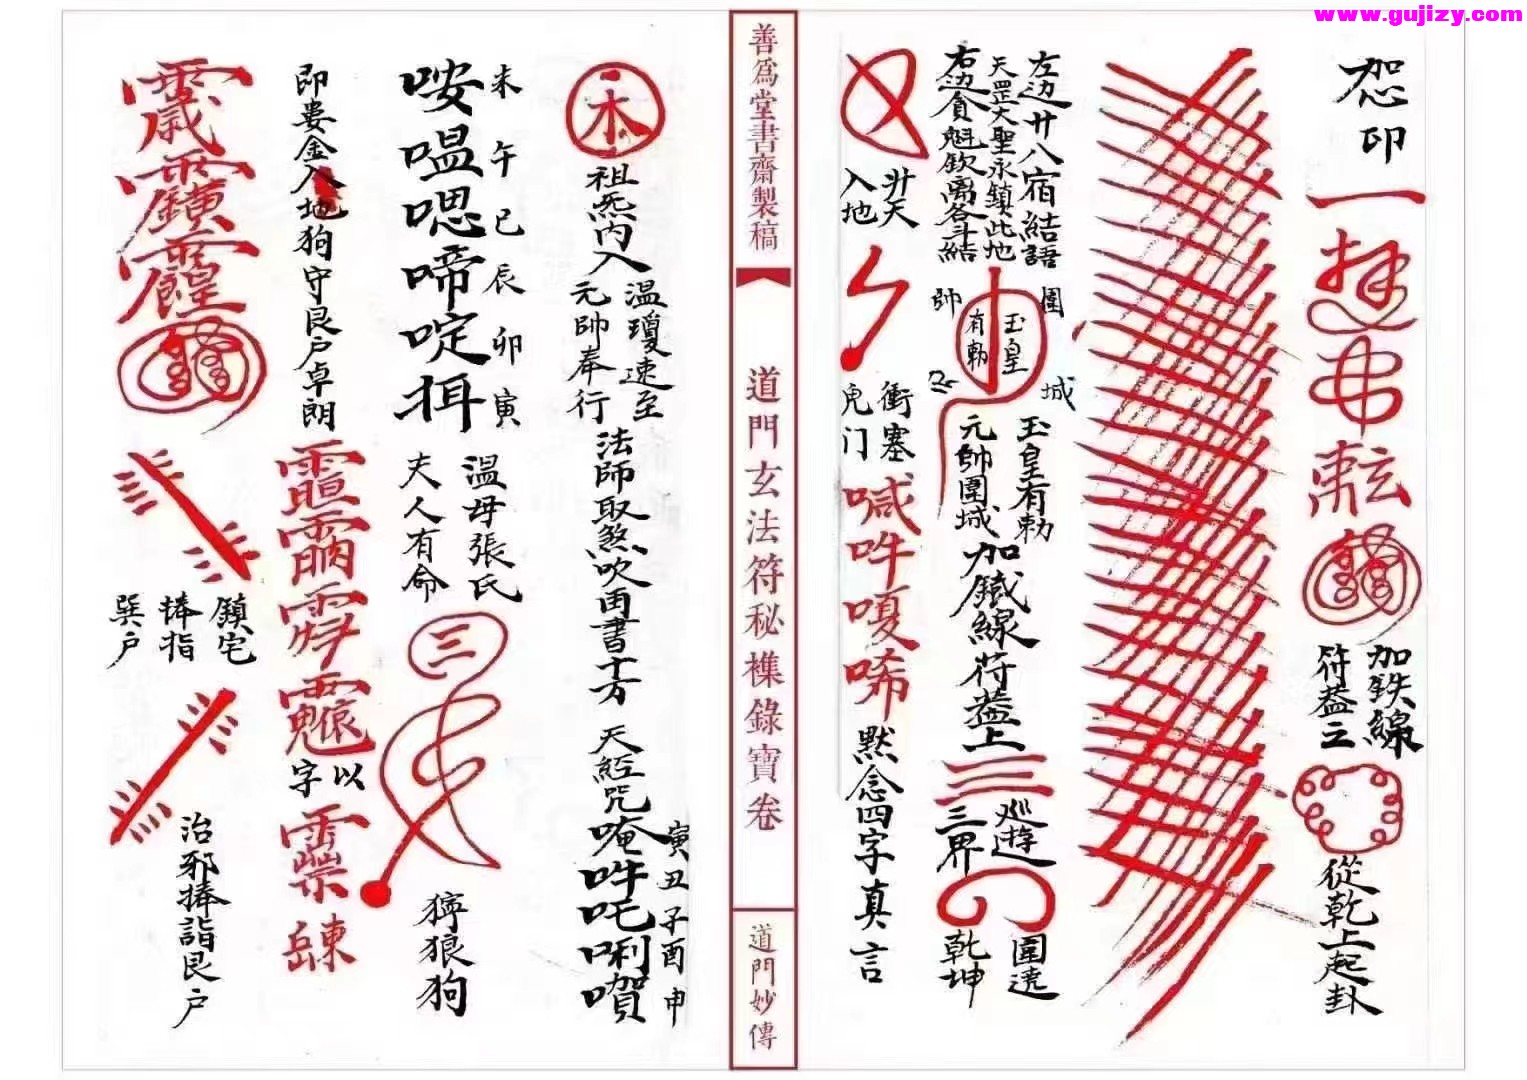 www.gujizy.com
恕印
加鉄線
符葢之
從乾上起卦
左边廿八宿結語
天罡大聖永鎮此地
右边貪魁欽离各斗結
圍
城
帥
玉皇
有勅
玉皇有勅
元帥圍城
加鐵線符葢上
巡遊
三界
圍遶
乾坤
升天
入地
衝塞
鬼门
喊吽嗄唏
默念四字真言
善爲堂書齋製稿
道門玄法符秘檏錄寶卷
道門妙傳
木
祖炁内入
温瓊速至
元帥奉行
法師取煞吹再書十方
天經咒
唵吽吒唎
寅丑子酉申
未午巳辰卯寅
唵嗢嗯啼啶
温母張氏
夫人有命
三
獰狼狗
即婁金入地狗守艮户卓朗
以
字
鎮宅
捧指
巽户
治邪捧詣艮户